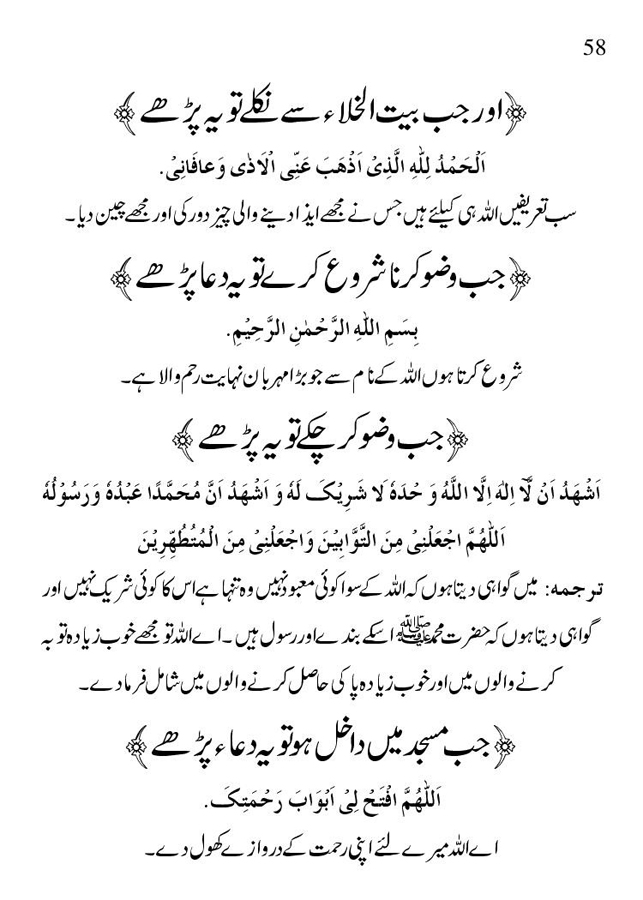 58
﴿اور جب بیت الخلاء سے نکلے تو یہ پڑھے﴾
اَلْحَمْدُ لِلّٰهِ الَّذِیْ اَذْهَبَ عَنِّی الْاَذٰی وَعافَانِیْ.
سب تعریفیں اللہ ہی کیلئے ہیں جس نے مجھے ایذا دینے والی چیز دور کی اور مجھے چین دیا۔
﴿جب وضو کرنا شروع کرے تو یہ دعا پڑھے﴾
بِسَمِ اللهِ الرَّحْمٰنِ الرَّحِیْمِ.
شروع کرتا ہوں اللہ کے نام سے جو بڑا مہربان نہایت رحم والا ہے۔
﴿جب وضو کر چکے تو یہ پڑھے﴾
اَشْهَدُ اَنْ لَّآ اِلٰهَ اِلَّا اللَّهُ وَ حْدَهٗ لَا شَرِیْکَ لَهٗ وَ اَشْهَدُ اَنَّ مُحَمَّدًا عَبْدُهٗ وَرَسُوْلُهٗ
اَللّٰهُمَّ اجْعَلْنِیْ مِنَ التَّوَّابِیْنَ وَاجْعَلْنِیْ مِنَ الْمُتُطَهِّرِیْنَ
ترجمه: میں گواہی دیتا ہوں کہ اللہ کے سوا کوئی معبود نہیں وہ تنہا ہے اس کا کوئی شریک نہیں اور
گواہی دیتا ہوں کہ حضرت محمد ﷺ اسکے بندے اور رسول ہیں۔ اے اللہ تو مجھے خوب زیادہ توبہ
کرنے والوں میں اور خوب زیادہ پاکی حاصل کرنے والوں میں شامل فرمادے۔
﴿جب مسجد میں داخل ہو تو یہ دعاء پڑھے﴾
اَللّٰهُمَّ افْتَحْ لِیْ اَبْوَابَ رَحْمَتِکَ.
اے اللہ میرے لئے اپنی رحمت کے دروازے کھول دے۔